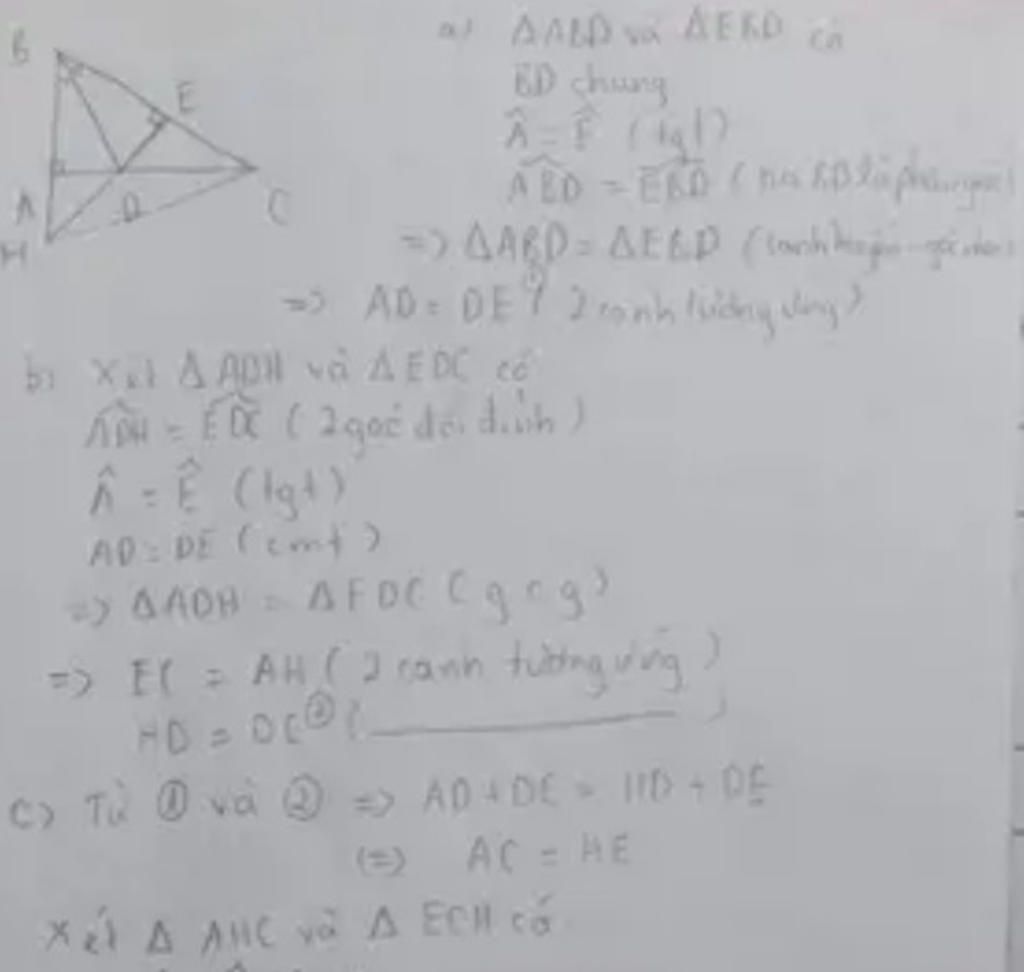 B
E
A
D
C
H
a) ΔABD và ΔEBD có
BD chung
Â = Ê (tgt)
ABD = EBD ( BD là phân giác)
=> ΔABD = ΔEBD (cạnh huyền - góc nhọn
=> AD = DE ① ( 2 cạnh tương ứng)
b) Xét ΔADH và ΔEDC có
ADH = EDC ( 2 góc đối đỉnh )
Â = Ê (tgt)
AD = DE ( cmt )
=> ΔADH = ΔEDC ( g c g )
=> EC = AH ( 2 cạnh tương ứng )
HD = DC ② ( )
c) Từ ① và ② => AD + DC = HD + DE
(=> AC = HE
Xét Δ AHC và Δ ECH có